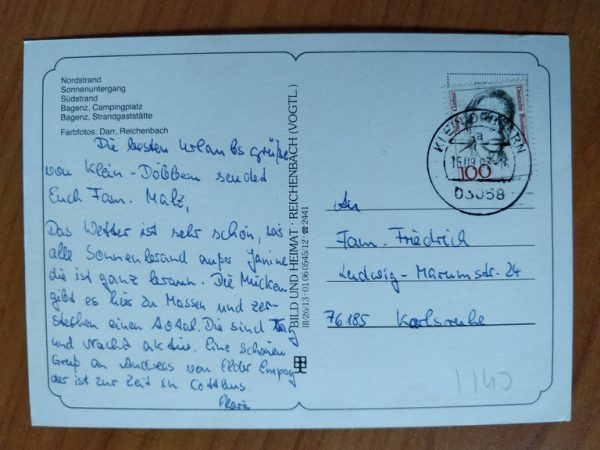 Nordstrand
Sonnenuntergang
Südstrand
Bagenz, Campingplatz
Bagenz, Strandgaststätte
Farbfotos: Darr, Reichenbach
Die besten Urlaubsgrüße
von Klein-Döbbern sendet
Euch Fam. Malz,
Das Wetter ist sehr schön,
alle Sonnenbrand außer Janine
die ist ganz braun. Die Mücken
gibt es hier zu Massen und zer-
stechen einen total. Die sind Tag
und Nacht aktiv. Eine schönen
Gruß an Andreas von
der ist zur Zeit in Cottbus.
BILD UND HEIMAT · REICHENBACH (VOGTL.)
III/26/13 · 01 06 0545/12 · ☎ 2441
Deutsche Bundespost
100
KLEIN DÖBBERN
a
03058
An
Fam. Friedrich
Ludwig-Marumstr. 24
76185 Karlsruhe